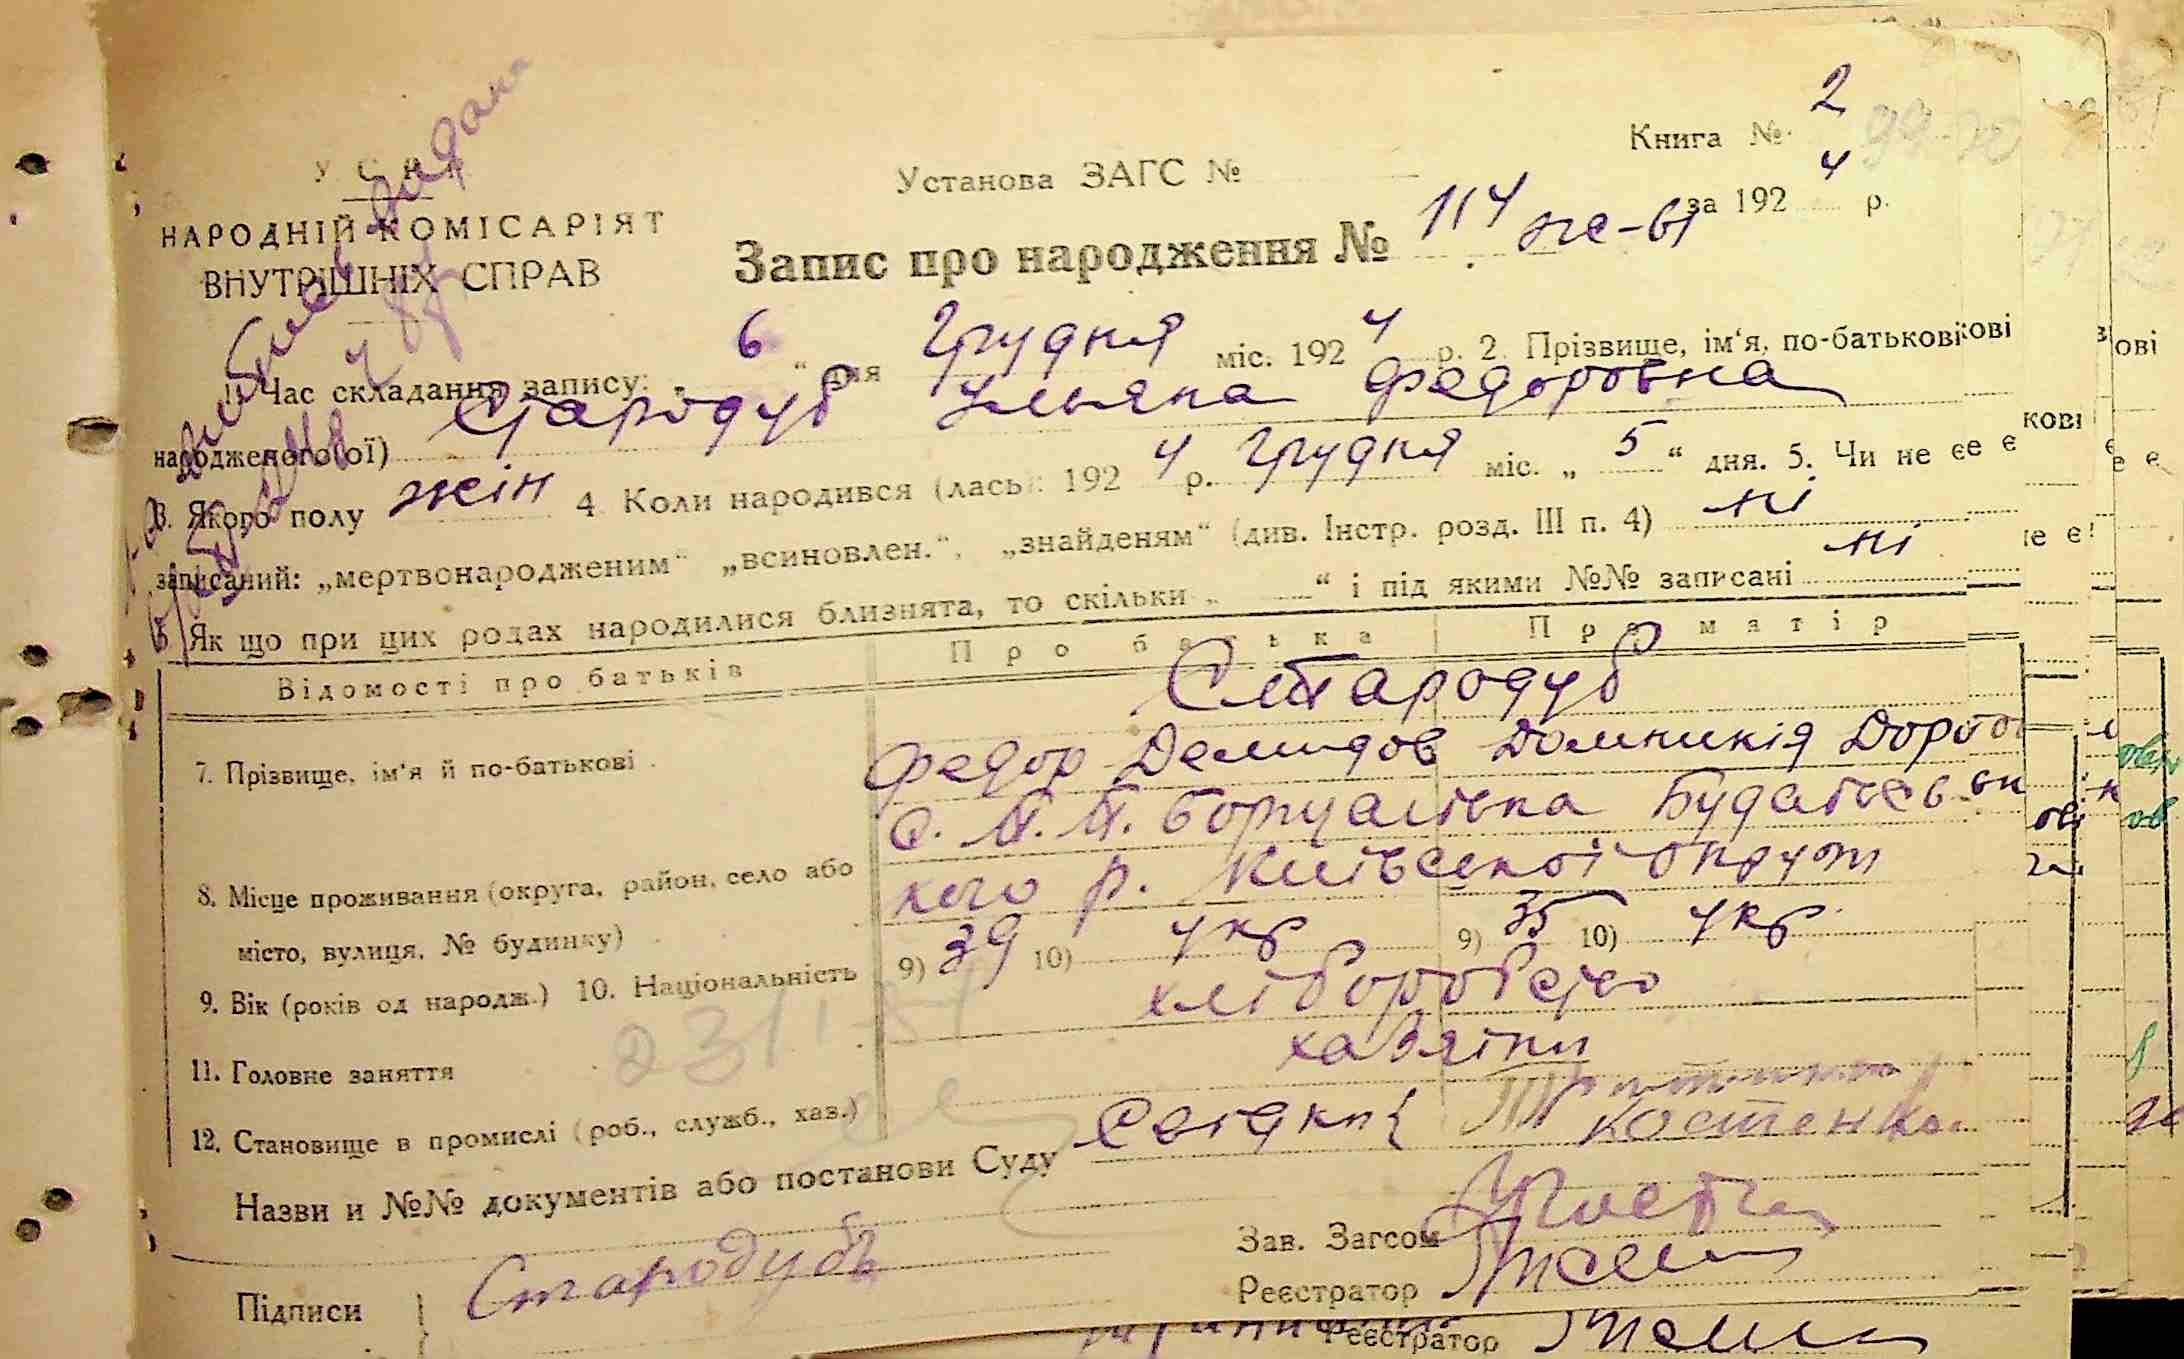 Книга № 2
У С Р Р
Установа ЗАГС №
за 192 4 р.
НАРОДНІЙ КОМІСАРІЯТ
ВНУТРІШНІХ СПРАВ
Запис про народження № 114 же-ы
1. Час складання запису: „ 6 “ дня Грудня міс. 192 4 р. 2. Прізвище, ім‘я, по-батькові
народженого(ої) Стародуб Ульяна Федоровна
3. Якого полу жін 4. Коли народився (лась): 192 4 р. Грудня міс. „ 5 “ дня. 5. Чи не є
записаний: „мертвонародженим“ „всиновлен.“, „знайденям“ (див. Інстр. розд. III п. 4) ні
6. Як що при цих родах народилися близнята, то скільки „ “ і під якими №№ записані ні
Відомості про батьків Про батька Про матір
7. Прізвище, ім‘я й по-батькові Стародуб
Федор Демидов Домникія
8. Місце проживання (округа, район, село або с. П. П. Борщагівка Будаївсь
місто, вулиця, № будинку) кого р. Київської округи
9. Вік (років од народж.) 10. Національність 9) 39 10) укр 9) 35 10) укр.
11. Головне заняття хліборобство
12. Становище в промислі (роб., служб., хаз.) хазяїни
Назви и №№ документів або постанови Суду Свідки Костенко
Зав. Загсом
Підписи Стародубъ
Реєстратор
Реєстратор